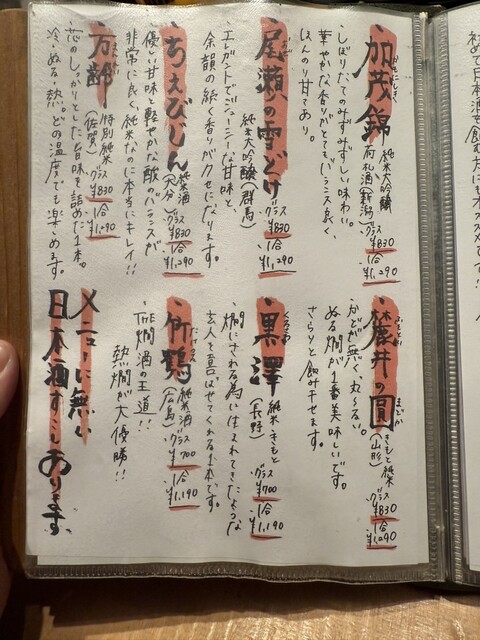 かもにしき
・加茂錦 純米大吟醸
荷札酒(新潟) グラス ¥830 1合 ¥1,290
しぼりたてのみずみずしい味わい。
華やかな香りがとてもバランス良く、
ほんのり甘さあり。
おぜ
・尾瀬の雪どけ 純米大吟醸(群馬) グラス ¥830 1合 ¥1,290
エレガントでジューシーな甘味と、
余韻の続く香りがクセになります。
・ちえびじん 純米酒(大分) グラス ¥830 1合 ¥1,290
優しい甘味と軽やかな酸のバランスが
非常に良く、純米なのに本当にキレイ!!
まんれい
・万齢 特別純米(佐賀) グラス ¥830 1合 ¥1,290
芯のしっかりとした旨味を詰めた1本。
冷・ぬる・熱。どの温度でも楽しめます。
ふもとい まどか
・麓井の圓 きもと純米(山形) グラス ¥830 1合 ¥1,290
かどが無く、丸〜るい。
ぬる燗が1番美味しいです。
さらりと飲み干せます。
くろさわ
・黒澤 純米きもと(長野) グラス ¥700 1合 ¥1,190
燗にされる為に生まれてきたような
玄人を喜ばせてくれる1本です。
たけつる
・竹鶴 純米酒(広島) グラス ¥700 1合 ¥1,190
THE燗酒の王道!!
熱燗が大優勝!!
メニューに無い
日本酒すこしあります